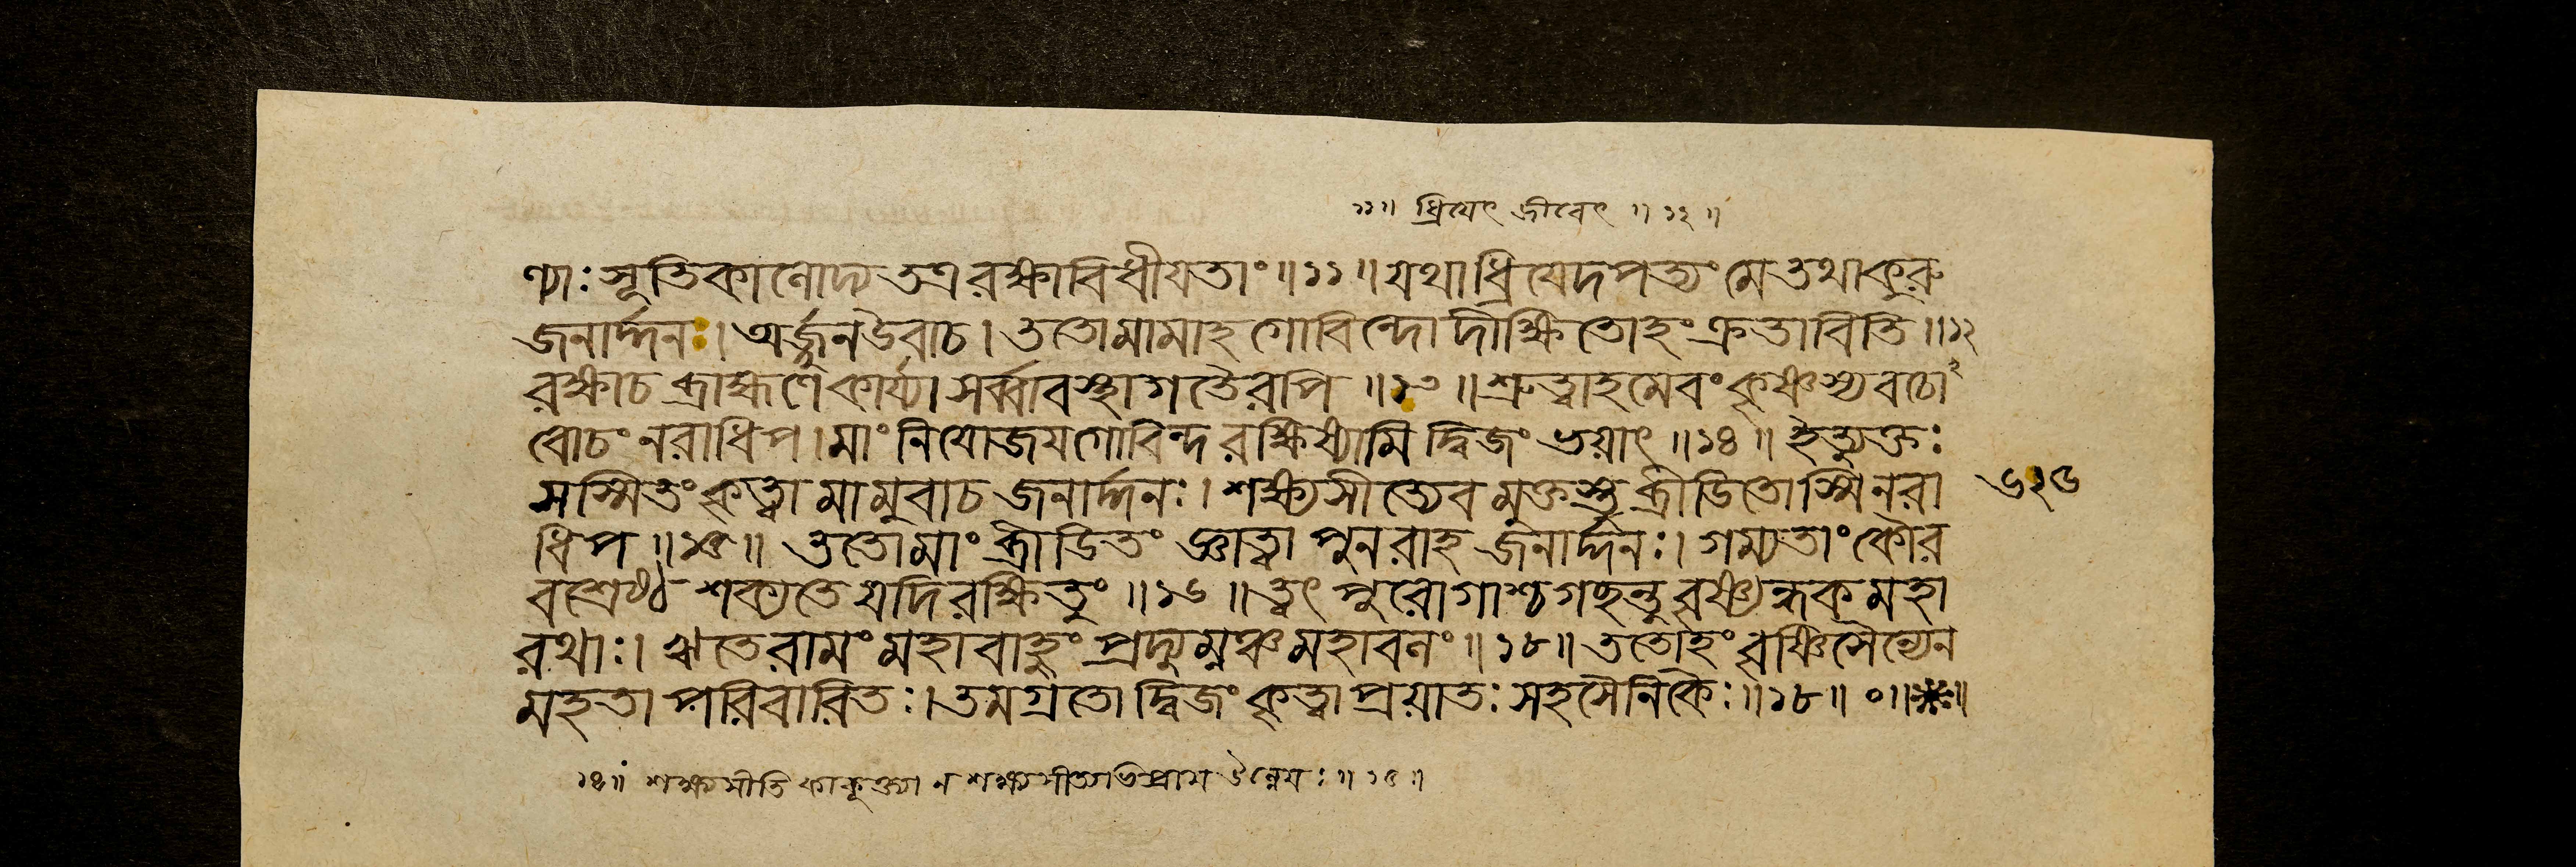 ১১॥ ধ্রিয়েৎ জীবেৎ ॥ ১২ ॥
ণ্যাঃ সূতিকালোদ্য তত্র রক্ষা বিধীয়তাং ॥১১॥ যথা ধ্রিয়েদপত্যং মে তথা কুরু
জনার্দ্দনঃ। অর্জ্জুন উবাচ। ততো মামাহ গোবিন্দো দীক্ষিতোহং ক্রতাবিতি ॥১২
রক্ষা চ ব্রাহ্মণে কার্য্যা সর্ব্বাবস্থাগতৈরপি ॥১৩॥ শ্রুত্বাহমেবং কৃষ্ণস্য বচো২
বোচং নরাধিপ। মাং নিযোজয় গোবিন্দ রক্ষিষ্যামি দ্বিজং ভয়াৎ ॥১৪॥ ইত্যুক্তঃ
সস্মিতং কৃত্বা মামুবাচ জনার্দ্দনঃ। শক্ষ্যসীত্যেবমুক্তস্তু ব্রীডিতোস্মি নরা
৬২৬
ধিপ ॥১৫॥ ততো মাং ব্রীডিতং জ্ঞাত্বা পুনরাহ জনার্দ্দনঃ। গম্যতাং কৌর
বশ্রেষ্ঠ শক্যতে যদি রক্ষিতুং ॥১৬॥ ত্বৎ পুরোগাশ্চ গচ্ছন্তু বৃষ্ণ্যন্ধক মহা
রথাঃ। ঋতে রামং মহাবাহুং প্রদ্যুম্নঞ্চ মহাবলং ॥১৮॥ ততোহং বৃষ্ণিসৈন্যেন
মহতা পরিবারিতঃ। তমগ্রতো দ্বিজং কৃত্বা প্রয়াতঃ সহ সৈনিকৈঃ ॥১৮॥ ०॥
১৪॥ শক্ষ্যসীতি কাকূক্ত্যা ন শক্ষ্যসীত্যভিপ্রায় উন্নেয়ঃ ॥ ১৫ ॥